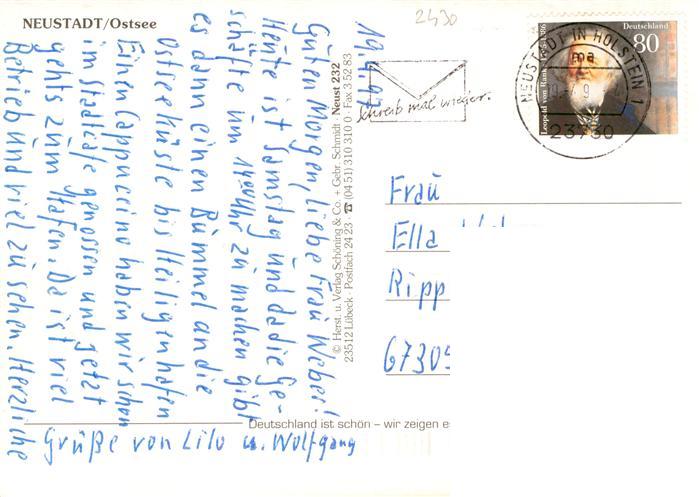 NEUSTADT/Ostsee
2430
19.7.97
Guten Morgen, liebe Frau Weber!
Heute ist Samstag und da die Ge-
schäfte um 14.00 Uhr zu machen gibt
es dann einen Bummel an die
Ostseeküste bis Heiligenhafen
Einen Cappuccino haben wir schon
im Stadtcafe genossen und jetzt
gehts zum Hafen. Da ist viel
Betrieb und viel zu sehen. Herzliche
Grüße von Lilo u. Wolfgang
© Herst. u. Verlag Schöning & Co. + Gebr. Schmidt · Neust 232
23512 Lübeck · Postfach 24 23 ☎ (04 51) 310 310 0 · Fax 3 52 83
Deutschland ist schön – wir zeigen es
Schreib mal wieder.
NEUSTADT IN HOLSTEIN 1
ma
23730
Deutschland
80
Leopold von Ranke 1795-1886
Frau
Ella
Ripp
67305